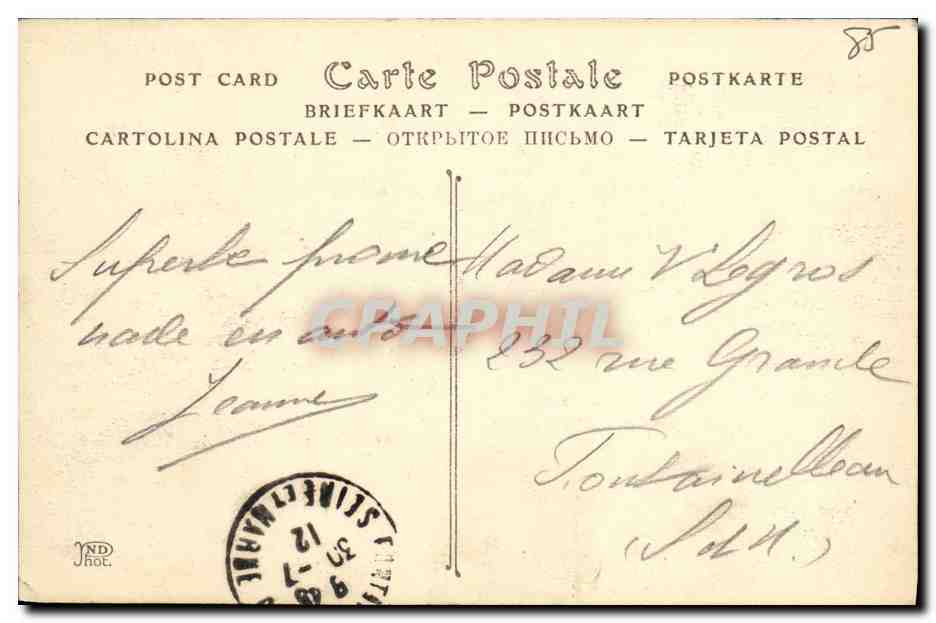 85
POST CARD Carte Postale POSTKARTE
BRIEFKAART — POSTKAART
CARTOLINA POSTALE — ОТКРЫТОЕ ПИСЬМО — TARJETA POSTAL
Superbe prome
nade en auto
Jeanne
Madame V Legros
232 rue Grande
Fontainebleau
(S et M.)
CPAPHIL
SEINE ET MARNE
12
ND
Phot.